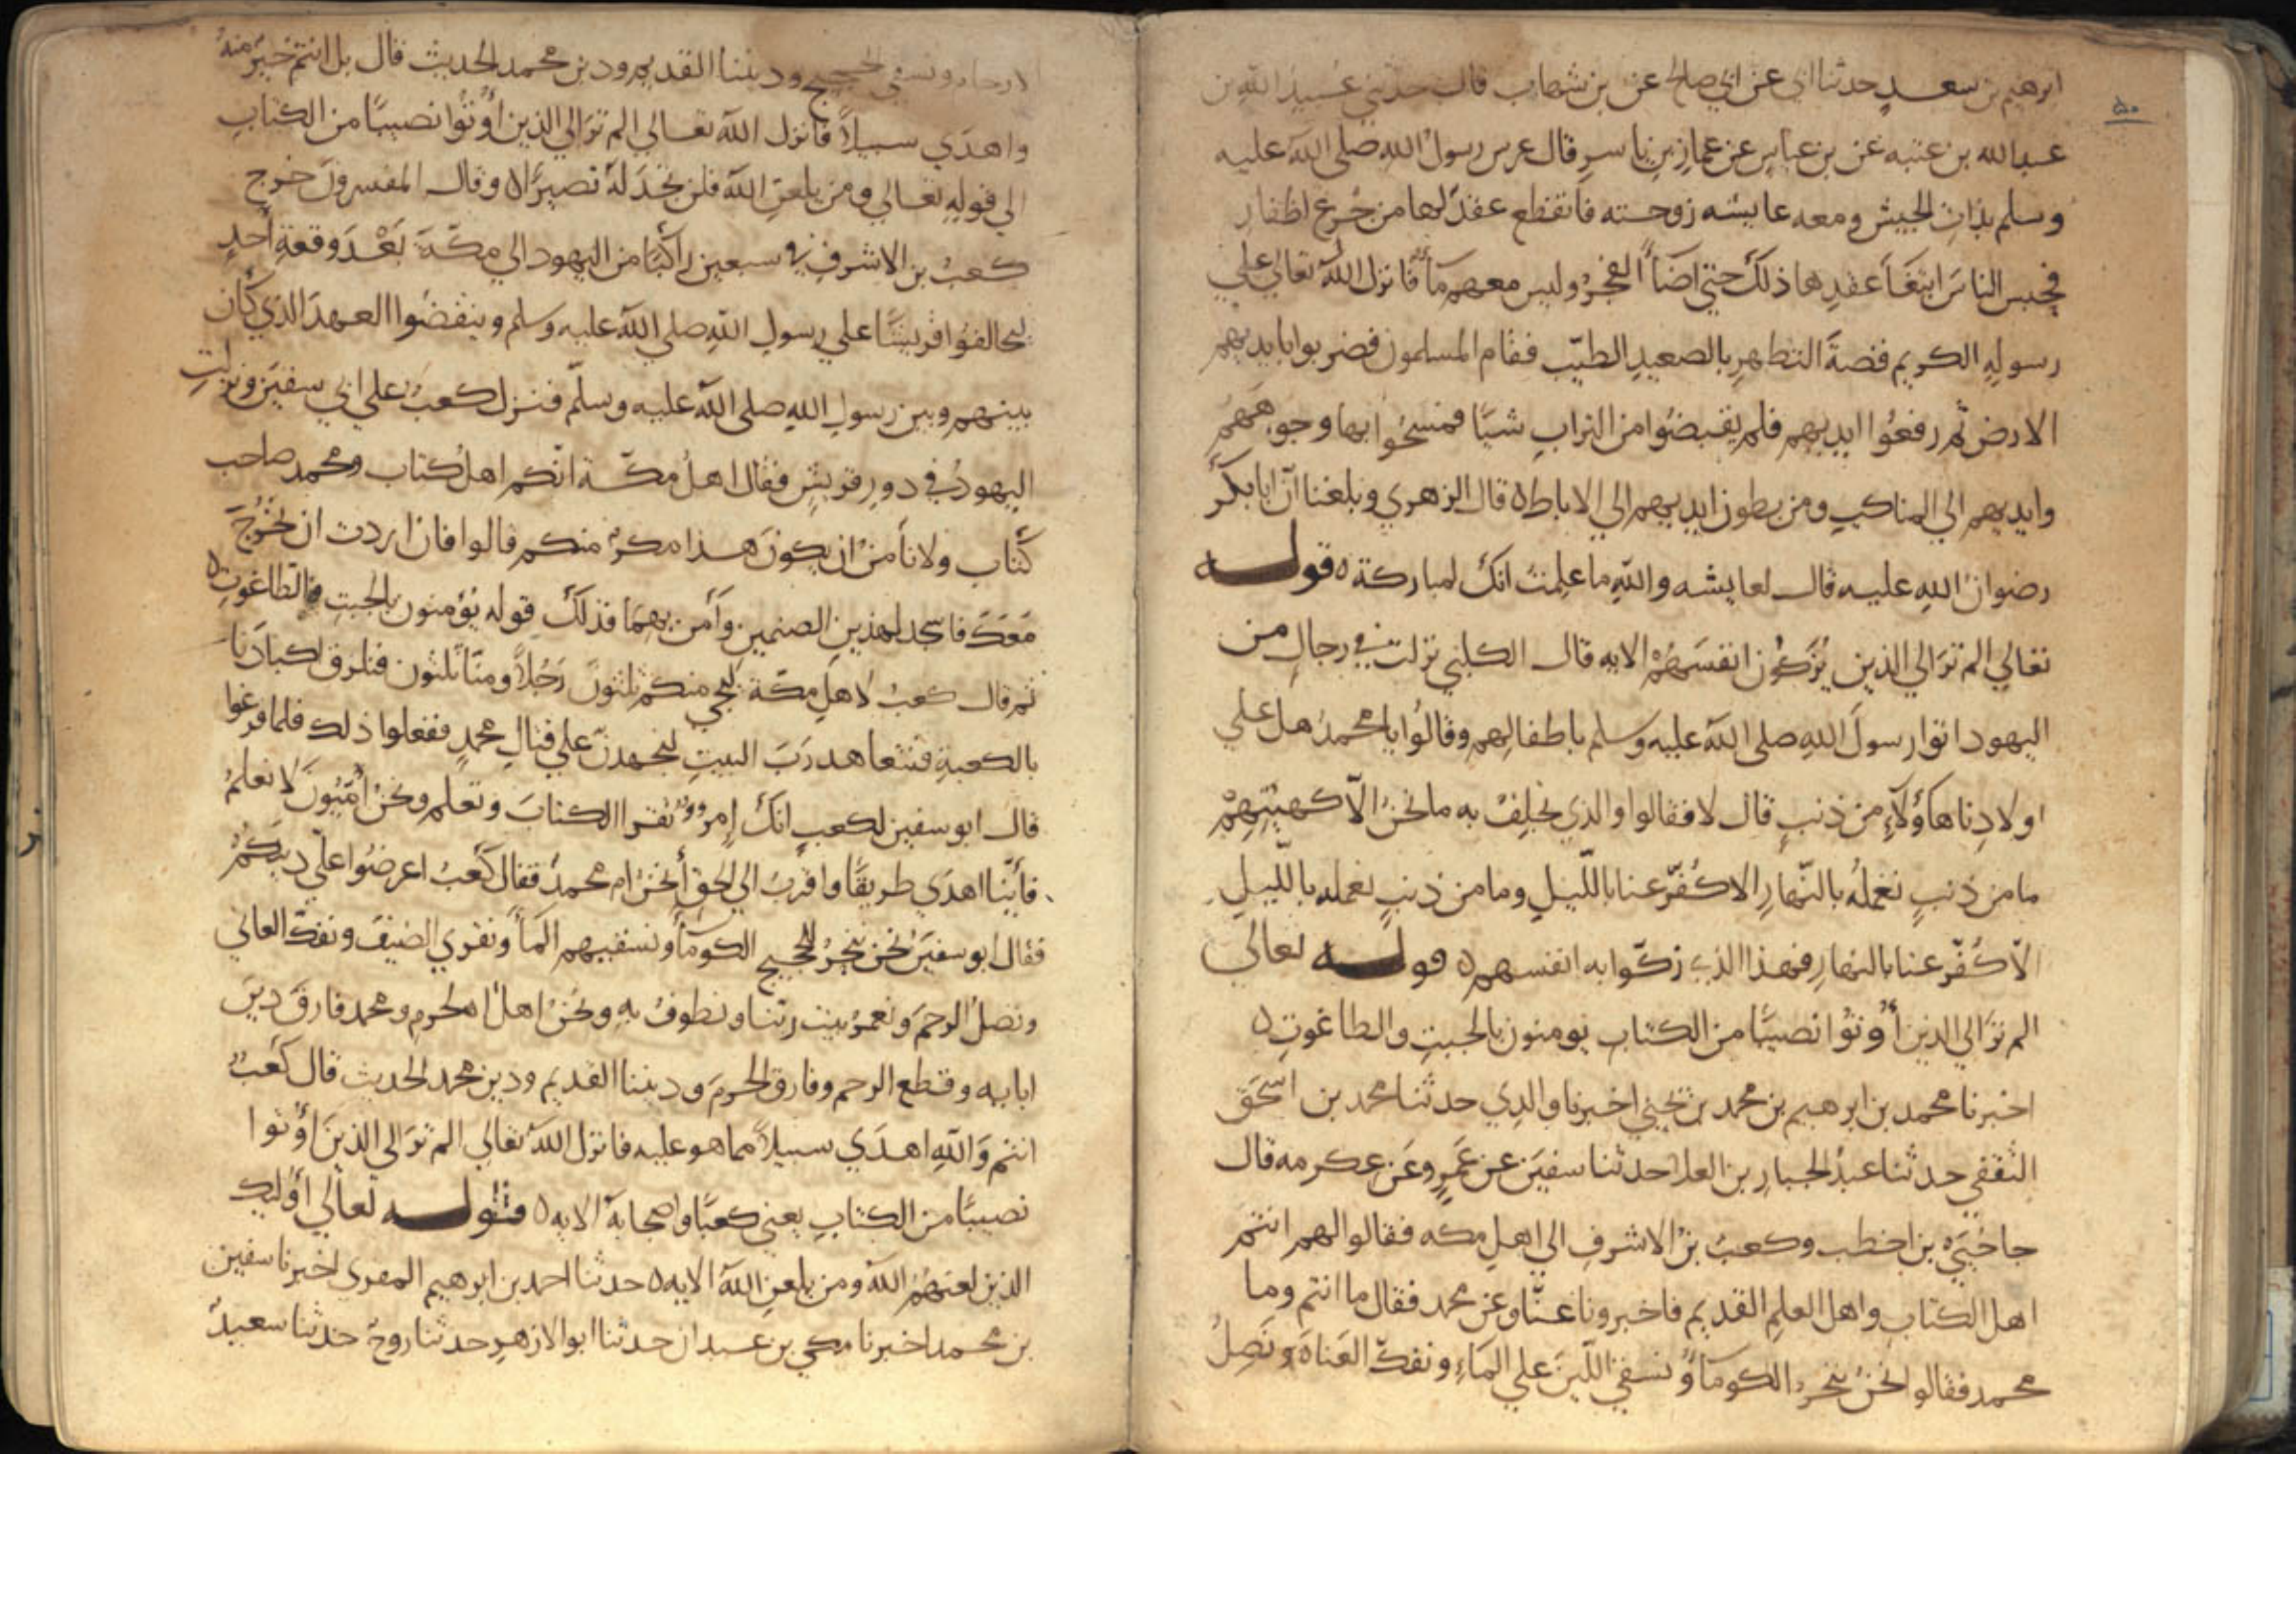 ٥٠
ابرهيم بن سعد حدثنا ابي عن ابي صالح عن بن شهاب قال حدثني عبيد الله بن
عبد الله بن عتبه عن بن عباس عن عمار بن ياسر قال عرس رسول الله صلى الله عليه
وسلم بذات الجيش ومعه عايشه زوجته فانقطع عقد لها من جزع اظفار
فحبس الناس ابتغا عقدها ذلك حتى اضا الفجر وليس معهم ما فانزل الله تعالى علي
رسوله الكريم قصة التطهر بالصعيد الطيب فقام المسلمون فضربوا بايديهم
الارض ثم رفعوا ايديهم فلم يقبضوا من التراب شيا فمسحوا بها وجوههم
وايديهم الي المناكب ومن بطون ايديهم الي الاباط ٥ قال الزهري وبلغنا ان ابا بكر
رضوان الله عليه قال لعايشه والله ما علمت انك لمباركة ٥ قوله
تعالي الم تر الي الذين يزكون انفسهم الايه قال الكلبي نزلت في رجال من
اليهود اتوا رسول الله صلى الله عليه وسلم باطفالهم وقالوا يا محمد هل علي
اولادنا هاؤلاء من ذنب قال لا فقالوا والذي نحلف به ما نحن الا كهيئتهم
ما من ذنب نعمله بالنهار الا كفر عنا بالليل وما من ذنب نعمله بالليل
الا كفر عنا بالنهار فهذا الذي زكوا به انفسهم ٥ قوله تعالي
الم تر الي الذين أوتوا نصيبا من الكتاب يومنون بالجبت والطاغوت ٥
اخبرنا محمد بن ابرهيم بن محمد بن يحيي اخبرنا والدي حدثنا محمد بن اسحق
الثقفي حدثنا عبد الجبار بن العلا حدثنا سفين عن عمرو عن عكرمه قال
جا حيي بن اخطب وكعب بن الاشرف الي اهل مكه فقالوا لهم انتم
اهل الكتاب واهل العلم القديم فاخبرونا عنا وعن محمد فقال ما انتم وما
محمد فقالوا نحن ننحر الكوما ونسقي اللبن علي الماء ونفك العناة ونصل
الارحام ونسقي الحجيج وديننا القديم ودين محمد الحديث قال بل انتم خير منه
واهدي سبيلا فانزل الله تعالي الم تر الي الذين أوتوا نصيبا من الكتاب
الي قوله تعالي ومن يلعن الله فلن تجد له نصيرا ٥ وقال المفسرون خرج
كعب بن الاشرف في سبعين راكبا من اليهود الي مكة بعد وقعة أحد
ليحالفوا قريشا علي رسول الله صلي الله عليه وسلم وينقضوا العهد الذي كان
بينهم وبين رسول الله صلى الله عليه وسلم فنزل كعب علي ابي سفين ونزلت
اليهود في دور قريش فقال اهل مكة انكم اهل كتاب ومحمد صاحب
كتاب ولا نامن ان يكون هذا مكر منكم قالوا فان اردت ان نخرج
معك فاسجد لهذين الصنمين وآمن بهما فذلك قوله يؤمنون بالجبت والطاغوت ٥
ثم قال كعب لاهل مكة ليجي منكم ثلثون رجلا ومنا ثلثون فنلزق اكبادنا
بالكعبة فنتعاهد رب البيت لنجهدن علي قتال محمد ففعلوا ذلك فلما فرغوا
قال ابو سفين لكعب انك امرؤ تقرا الكتاب وتعلم ونحن أميون لا نعلم
فأينا اهدي طريقا واقرب الي الحق أنحن ام محمد فقال كعب اعرضوا علي دينكم
فقال ابو سفين نحن ننحر للحجيج الكوما ونسقيهم الما ونقري الضيف ونفك العاني
ونصل الرحم ونعمر بيت ربنا ونطوف به ونحن اهل الحرم ومحمد فارق دين
ابايه وقطع الرحم وفارق الحرم وديننا القديم ودين محمد الحديث قال كعب
انتم والله اهدي سبيلا مما هو عليه فانزل الله تعالي الم تر الي الذين أوتوا
نصيبا من الكتاب يعني كعبا واصحابه الايه ٥ قوله تعالي أوليك
الذين لعنهم الله ومن يلعن الله الايه ٥ حدثنا احمد بن ابرهيم المقري اخبرنا سفين
بن محمد اخبرنا مكي بن عبدان حدثنا ابو الازهر حدثنا روح حدثنا سعيد